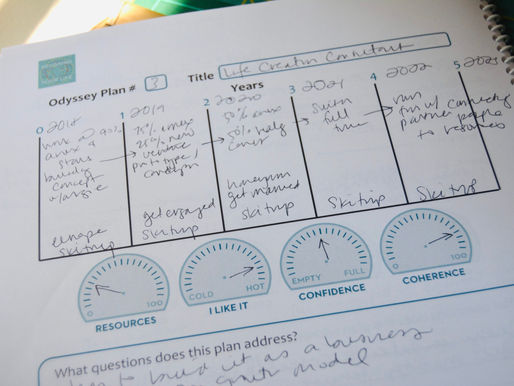 DESIGNING
YOUR LIFE
Odyssey Plan # 3
Title Life Creation Consultant
Years
0 2018
1 2019
2 2020
3 2021
4 2022
5 2023
work 90%
stars
building
concept
75% amex
25% new
venture
prototype/
50% amex
50% half
switch
full
time
run
connecting
partner people
to resources
ski trip
get engaged
ski trip
honeymoon
get married
ski trip
ski trip
ski trip
0 100
RESOURCES
COLD HOT
I LIKE IT
EMPTY FULL
CONFIDENCE
0 100
COHERENCE
What questions does this plan address?
to build it as a business
growth model